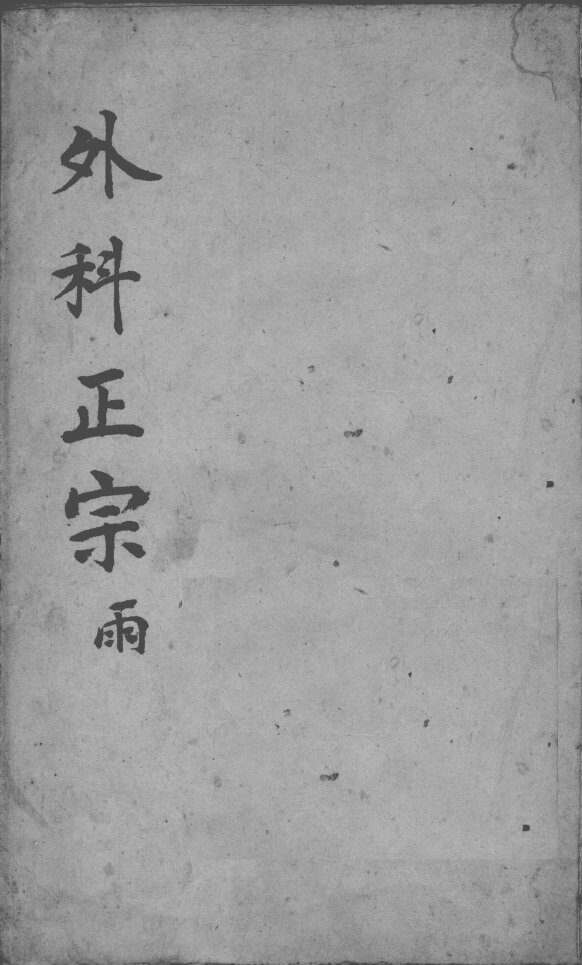 外科正宗雨